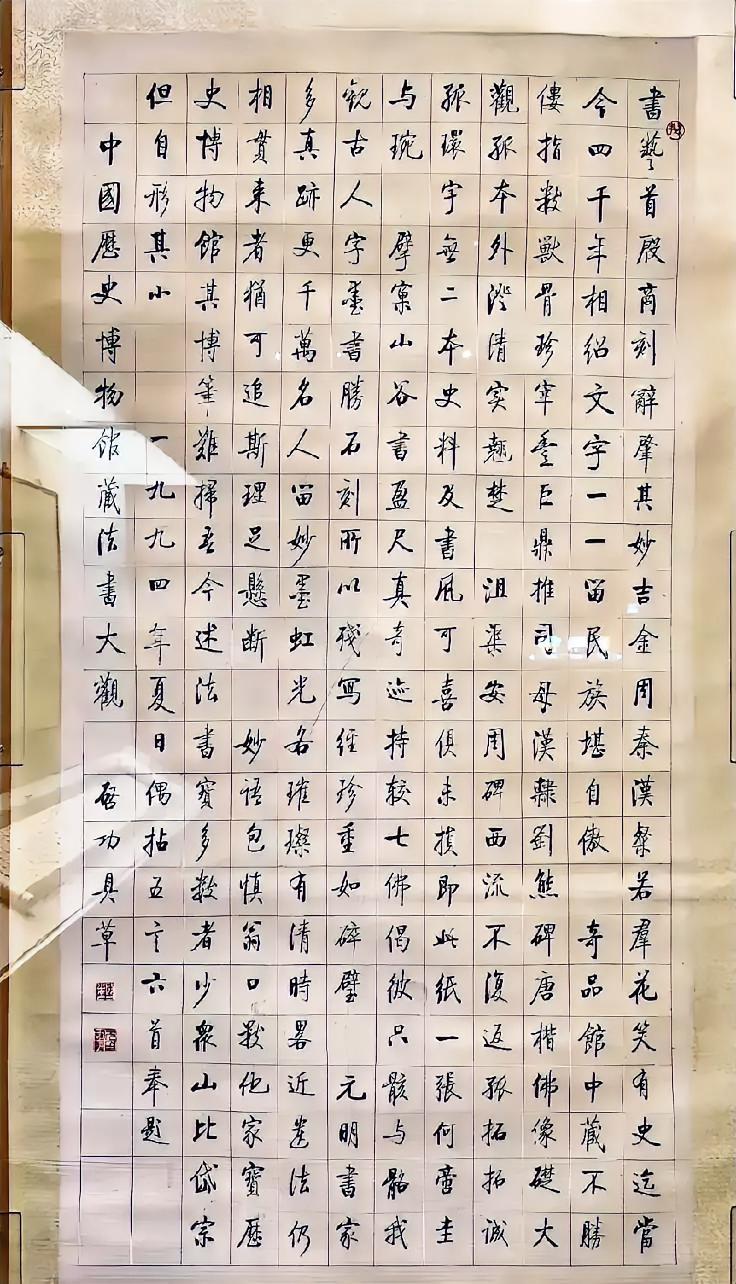 書藝首殷商刻辭肇其妙吉金周秦漢粲若羣花笑有史迄當
今四千年相紹文字一一留民族堪自傲 奇品館中藏不勝
僂指數獸骨珍宰豐巨鼎推司母漢隸劉熊碑唐楷佛像礎大
觀孤本外澄清實翹楚 沮渠安周碑西流不復返孤拓拓誠
孤環宇無二本史料及書風可喜俱未損即此紙一張何啻圭
与琬 擘窠山谷書盈尺真奇迹持較七佛偈彼只骸与骼我
觀古人字墨書勝石刻所以殘寫經珍重如碎璧 元明書家
多真跡更千萬名人留妙墨虹光各璀璨有清時畧近法仍
相貫來者猶可追斯理足懸断 妙語包慎翁口數他家寶歷
史博物館其博筆難掃吾今述法書寶多數者少眾山比岱宗
但自形其小 一九九四年夏日偶拈五言六首奉題
中國歷史博物館藏法書大觀 啓功具草